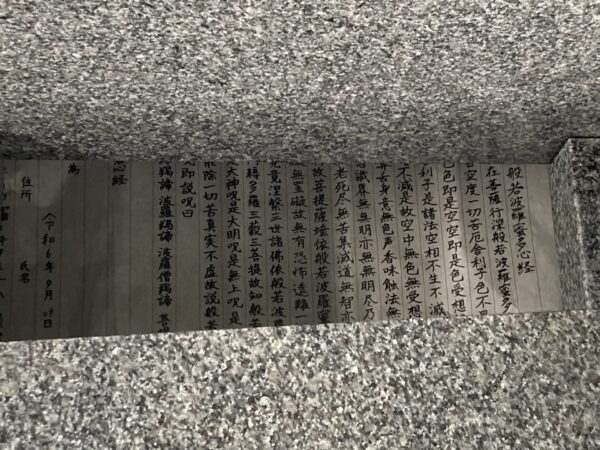 般若波羅蜜多心経
在菩薩行深般若波羅蜜多
空度一切苦厄舎利子色不
色即是空空即是色受想
利子是諸法空相不生不滅
不滅是故空中無色無受想
舌身意無色声香味触法無
識界無無明亦無無明尽乃
老死尽無苦集滅道無智亦
故菩提薩埵依般若波羅蜜
無罣礙故無有恐怖遠離一
究竟涅槃三世諸佛依般若波
耨多羅三藐三菩提故知般若
是大神呪是大明呪是無上呪是
能除一切苦真実不虚故説般若
即説呪曰
羯諦 波羅羯諦 波羅僧羯諦 菩
心経
為
令和6年9月29日
住所
氏名